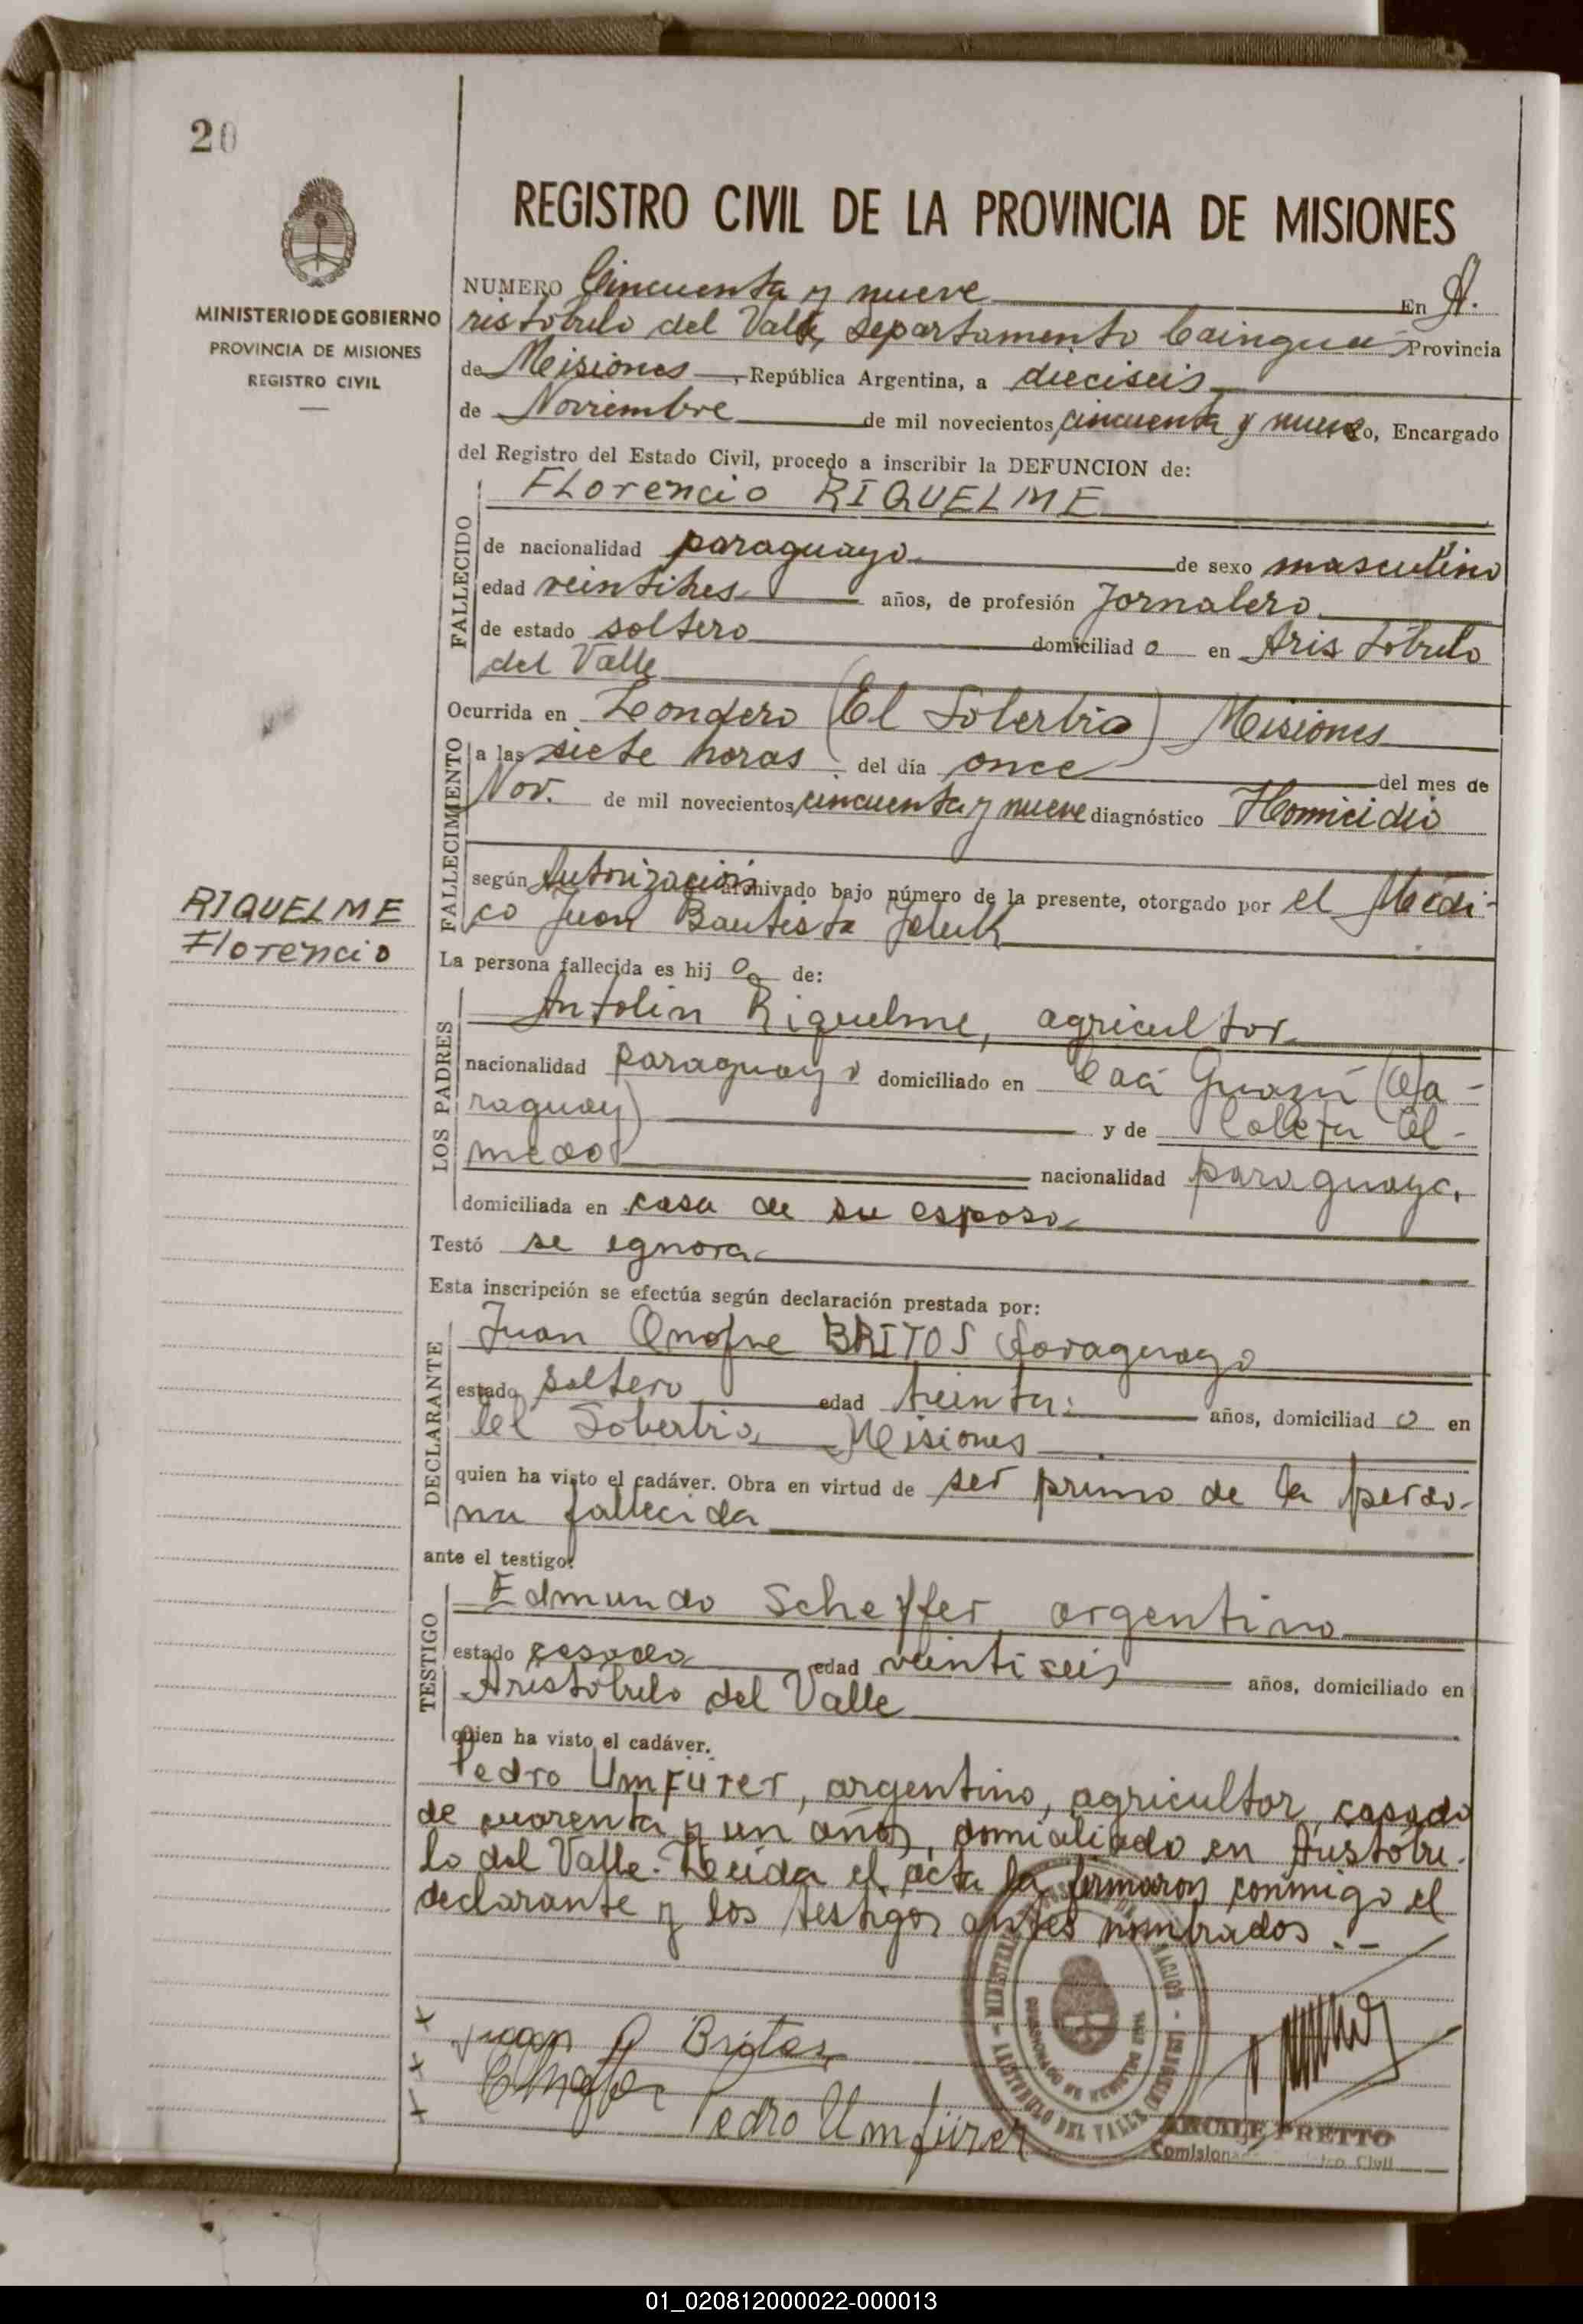 20
REGISTRO CIVIL DE LA PROVINCIA DE MISIONES
MINISTERIO DE GOBIERNO
PROVINCIA DE MISIONES
REGISTRO CIVIL
NUMERO Cincuenta y nueve En A.
ristóbulo del Valle, Departamento Cainguás Provincia
de Misiones, República Argentina, a dieciseis
de Noviembre de mil novecientos cincuenta y nueve yo, Encargado
del Registro del Estado Civil, procedo a inscribir la DEFUNCION de:
FLorencio RIQUELME
FALLECIDO
de nacionalidad paraguayo de sexo masculino
edad veintitres años, de profesión Jornalero
de estado soltero domiciliad o en Aristóbulo
del Valle
Ocurrida en Londero (El Soberbio) Misiones
FALLECIMIENTO
a las siete horas del día once del mes de
Nov. de mil novecientos cincuenta y nueve diagnóstico Homicidio
según Autorización archivado bajo número de la presente, otorgado por el Médi-
co Juan Bautista
RIQUELME
Florencio
La persona fallecida es hij o de:
LOS PADRES
Antolin Riquelme, agricultor
nacionalidad paraguayo domiciliado en Caá Guazú (Pa-
raguay) y de
nacionalidad paraguaya,
domiciliada en casa de su esposo
Testó se ignora
Esta inscripción se efectúa según declaración prestada por:
DECLARANTE
Juan Onofre BRITOS Paraguayo
estado soltero edad treinta años, domiciliad o en
El Soberbio Misiones
quien ha visto el cadáver. Obra en virtud de ser primo de la perso-
na fallecida
ante el testigo:
TESTIGO
Edmundo Scheffer argentino
estado casado edad veintiseis años, domiciliado en
Aristóbulo del Valle
quien ha visto el cadáver.
Pedro Umfürer, argentino, agricultor, casado
de cuarenta y un años, domiciliado en Aristóbu-
lo del Valle. Leida el acta la firmaron conmigo el
declarante y los testigos antes nombrados.--
x Juan O Britos
x
x Pedro Umfürer
ARISTOBULO DEL VALLE (MISIONES)
PRETTO
Civil
01_020812000022-000013